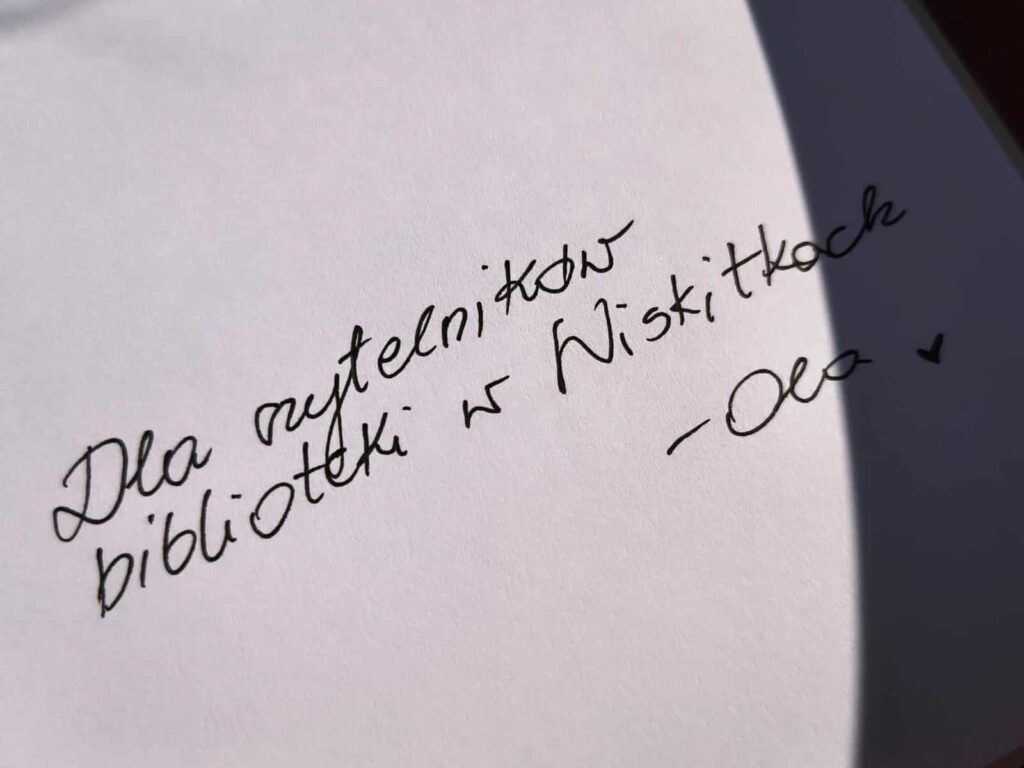 Dla czytelników
biblioteki w Wiskitkach
- Ola ♥